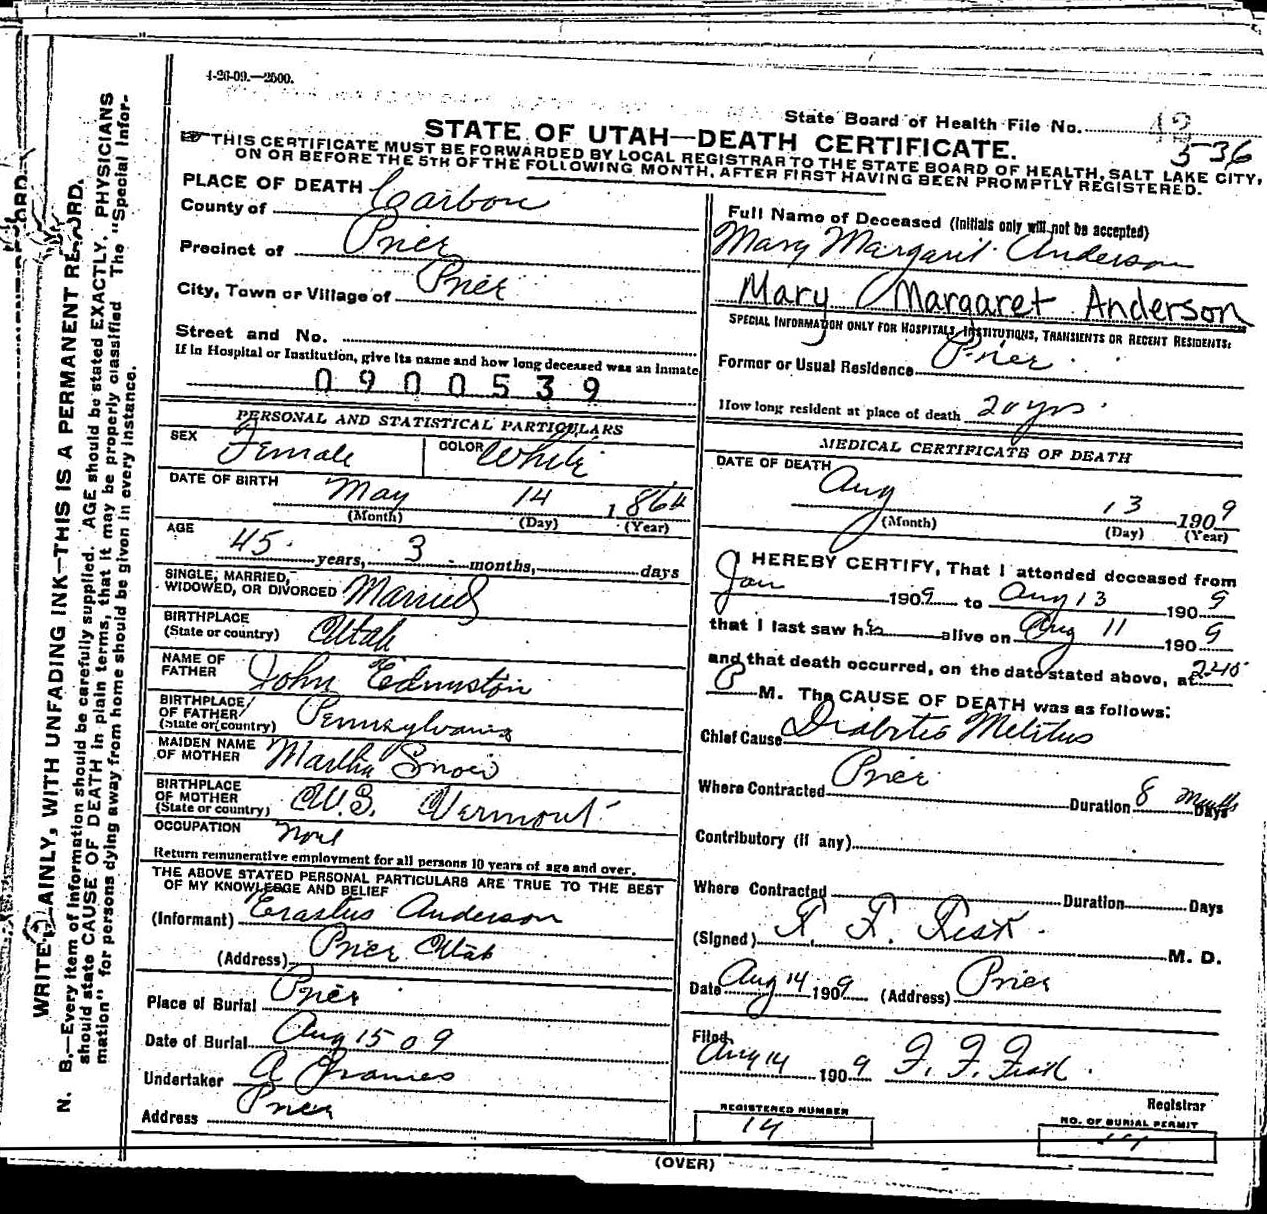 4-26-09.—2500.
State Board of Health File No. 13
536
STATE OF UTAH—DEATH CERTIFICATE.
THIS CERTIFICATE MUST BE FORWARDED BY LOCAL REGISTRAR TO THE STATE BOARD OF HEALTH, SALT LAKE CITY,
ON OR BEFORE THE 5TH OF THE FOLLOWING MONTH, AFTER FIRST HAVING BEEN PROMPTLY REGISTERED.
PLACE OF DEATH
County of Carbon
Precinct of Price
City, Town or Village of Price
Street and No.
If in Hospital or Institution, give its name and how long deceased was an Inmate
0900539
PERSONAL AND STATISTICAL PARTICULARS
SEX Female COLOR White
DATE OF BIRTH May 14 1864
(Month) (Day) (Year)
AGE 45 years, 3 months, days
SINGLE, MARRIED,
WIDOWED, OR DIVORCED Married
BIRTHPLACE
(State or country) Utah
NAME OF
FATHER John Edmiston
BIRTHPLACE
OF FATHER
(State or country) Pennsylvania
MAIDEN NAME
OF MOTHER Martha Snow
BIRTHPLACE
OF MOTHER
(State or country) U.S. Vermont
OCCUPATION None
Return remunerative employment for all persons 10 years of age and over.
THE ABOVE STATED PERSONAL PARTICULARS ARE TRUE TO THE BEST
OF MY KNOWLEDGE AND BELIEF
(Informant) Erastus Anderson
(Address) Price Utah
Place of Burial Price
Date of Burial Aug 15 09
Undertaker A
Address Price
Full Name of Deceased (Initials only will not be accepted)
Mary Margarit Anderson
Mary Margaret Anderson
SPECIAL INFORMATION ONLY FOR HOSPITALS, INSTITUTIONS, TRANSIENTS OR RECENT RESIDENTS:
Former or Usual Residence Price
How long resident at place of death 20 yrs.
MEDICAL CERTIFICATE OF DEATH
DATE OF DEATH
Aug 13 1909
(Month) (Day) (Year)
I HEREBY CERTIFY, That I attended deceased from
Jan 1909 to Aug 13 1909
that I last saw her alive on Aug 11 1909
and that death occurred, on the date stated above, at 2:45
P M. The CAUSE OF DEATH was as follows:
Chief Cause Diabetis Melitus
Where Contracted Price Duration 8 Months Days
Contributory (if any)
Where Contracted Duration Days
(Signed) F. F. Fisk M. D.
Date Aug 14 1909 (Address) Price
Filed
Aug 14 1909 F. F. Fisk
Registrar
REGISTERED NUMBER
14
NO. OF BURIAL PERMIT
14
(OVER)
WRITE PLAINLY, WITH UNFADING INK—THIS IS A PERMANENT RECORD.
N. B.—Every item of information should be carefully supplied. AGE should be stated EXACTLY. PHYSICIANS
should state CAUSE OF DEATH in plain terms, that it may be properly classified The "Special Infor-
mation" for persons dying away from home should be given in every instance.